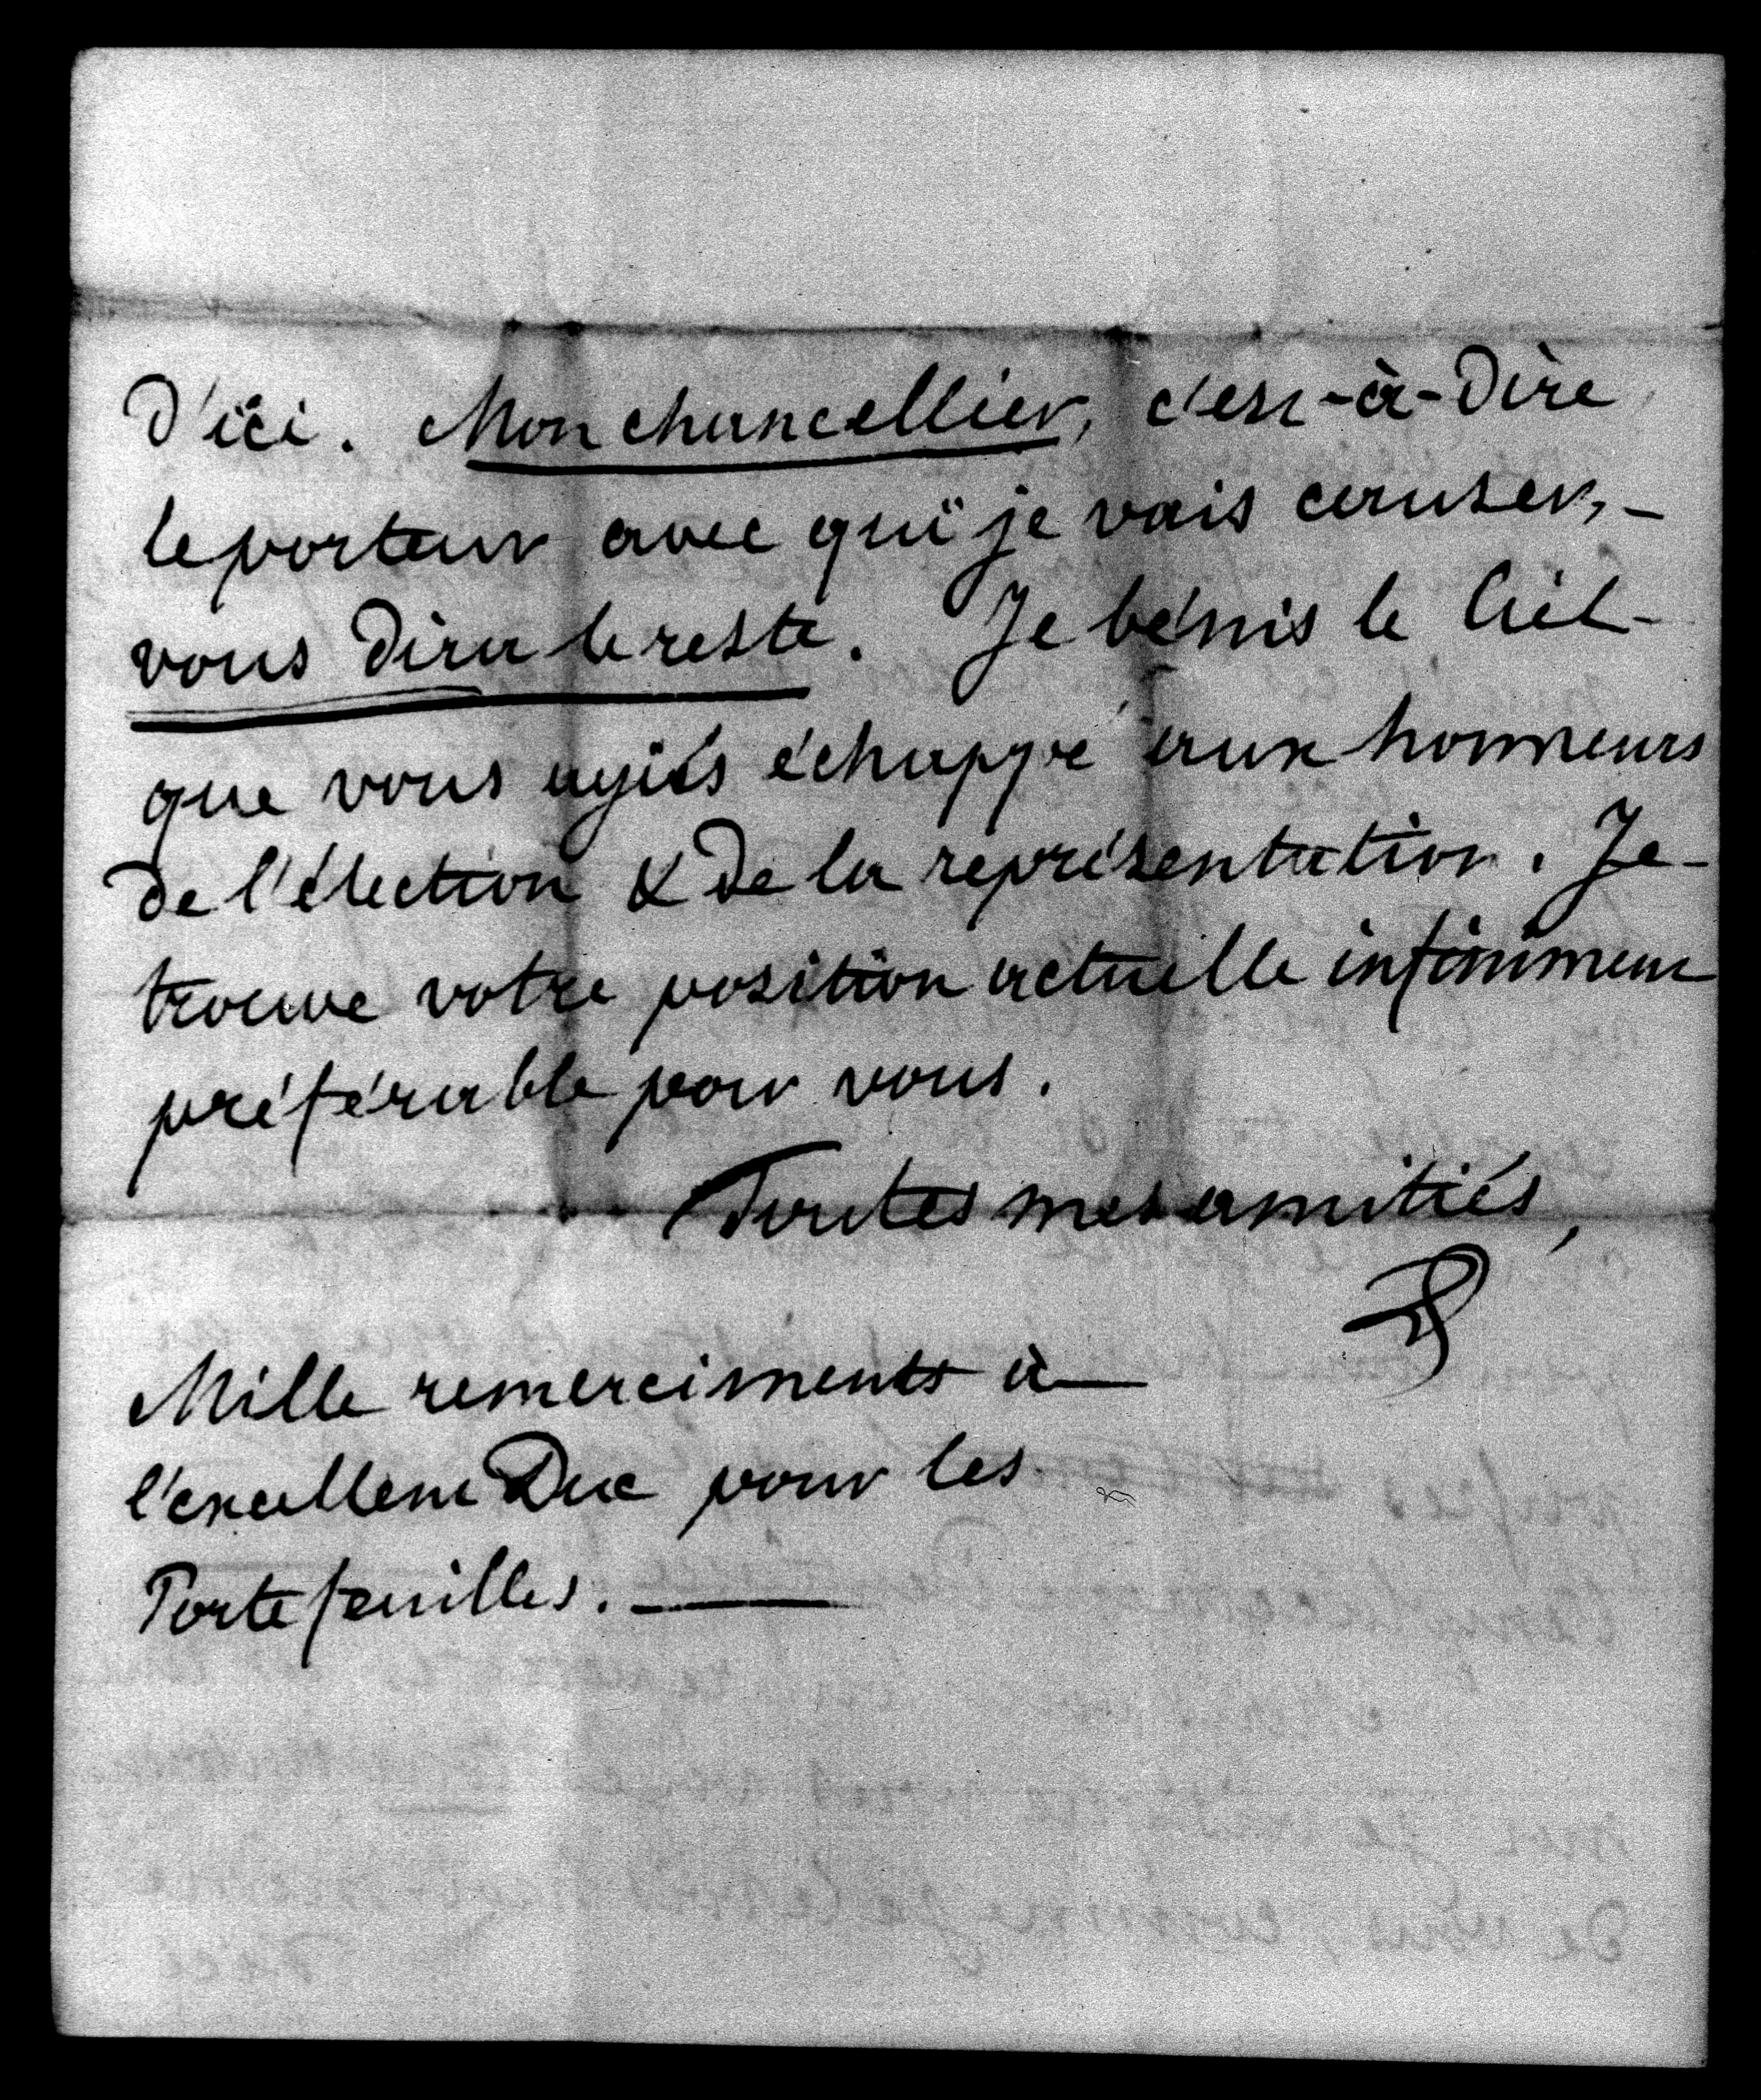 d'ici. Mon chancellier, c'est-à-dire
le porteur avec qui je vais causer, -
vous dira le reste. Je bénis le Ciel -
que vous ayiés échappé aux honneurs
de l'élection & de la représentation. Je -
trouve votre position actuelle infiniment
préférable pour vous.
Toutes mes amitiés,
Mille remerciments à
l'excellent Duc pour les
Portefeuilles.